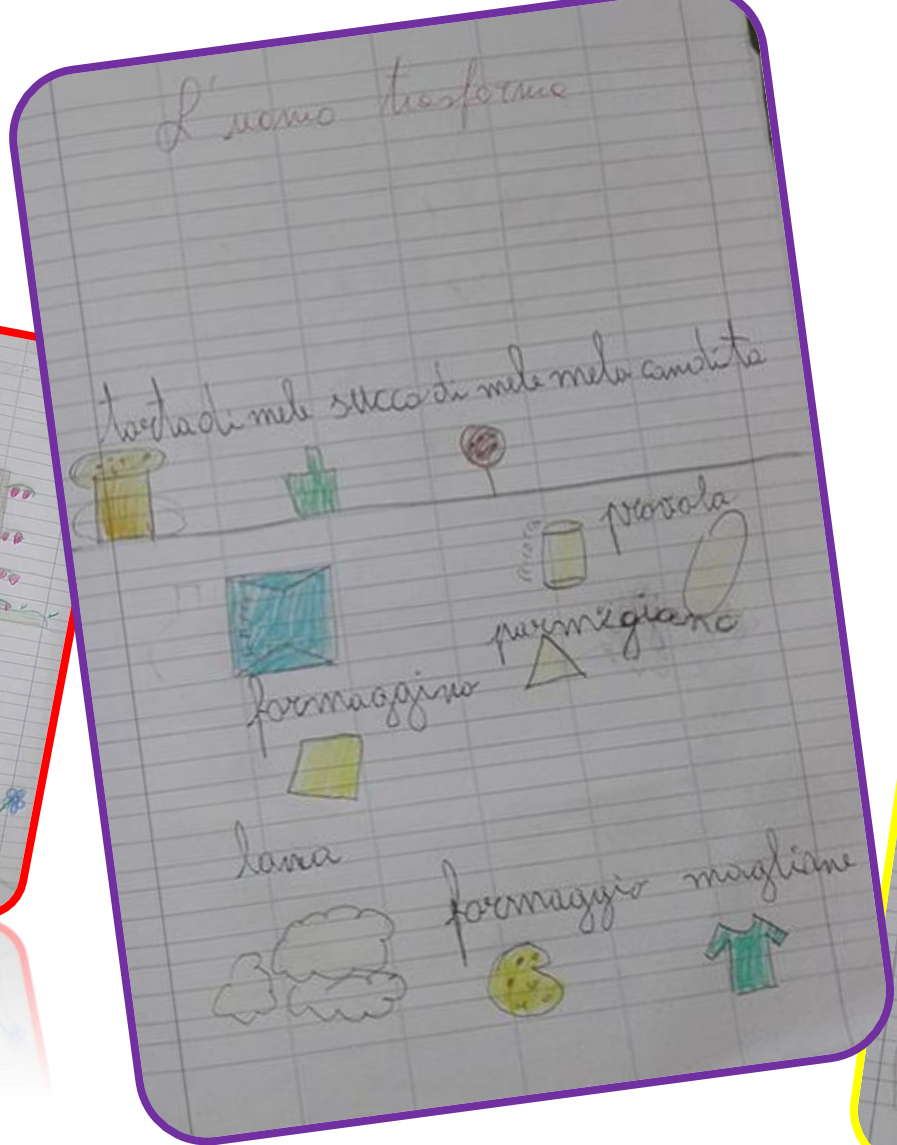 L'uomo trasforma
torta di mele succo di mele mela candita
provola
parmigiano
formaggino
lana
formaggio magliane